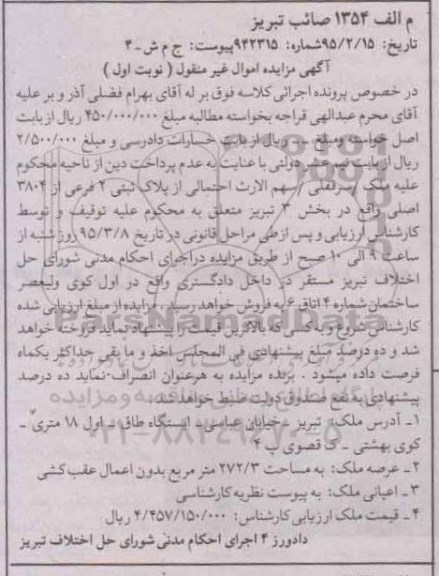 م الف ۱۳۵۴ صائب تبریز
تاریخ: ۹۵/۲/۱۵شماره: ۹۴۲۳۱۵پیوست: ج م ش-۴
آگهی مزایده اموال غیر منقول ( نوبت اول )
در خصوص پرونده اجرائی کلاسه فوق بر له آقای بهرام فضلی آذر و بر علیه
آقای محرم عبدالهی قراجه بخواسته مطالبه مبلغ ۴۵۰/۰۰۰/۰۰۰ ریال از بابت
اصل خواسته و مبلغ ... ریال از بابت خسارات دادرسی و مبلغ ۲/۵۰۰/۰۰۰
ریال از بابت نیم عشر دولتی با عنایت به عدم پرداخت دین از ناحیه محکوم
علیه ملک /سرقفلی /سهم الارث احتمالی از پلاک ثبتی ۲ فرعی از ۳۸۰۲
اصلی واقع در بخش ۳ تبریز متعلق به محکوم علیه توقیف و توسط
کارشناس ارزیابی و پس از طی مراحل قانونی در تاریخ ۹۵/۳/۸ روز شنبه از
ساعت ۹ الی ۱۰ صبح از طریق مزایده دراجرای احکام مدنی شورای حل
اختلاف تبریز مستقر در داخل دادگستری واقع در اول کوی ولیعصر
ساختمان شماره ۴ اتاق ۶ به فروش خواهد رسید. مزایده از مبلغ ارزیابی شده
کارشناس شروع و به کسی که بالاترین قیمت را پیشنهاد نماید فروخته خواهد
شد و ده درصد مبلغ پیشنهادی فی المجلس اخذ و ما بقی حداکثر یکماه
فرصت داده میشود . برنده مزایده به هرعنوان انصراف نماید ده درصد
پیشنهادی به نفع صندوق دولت ضبط خواهد شد.
۱ـ آدرس ملک: تبریز ـ خیابان عباسی ـ ایستگاه طاق ـ اول ۱۸ متری ـ
کوی بهشتی ـ ک قصوی پ ۴
۲ـ عرصه ملک: به مساحت ۲۷۲/۳ متر مربع بدون اعمال عقب کشی
۳ـ اعیانی ملک: به پیوست نظریه کارشناسی
۴ـ قیمت ملک ارزیابی کارشناس: ۴/۴۵۷/۱۵۰/۰۰۰ ریال
دادورز ۴ اجرای احکام مدنی شورای حل اختلاف تبریز
ParsNamadData